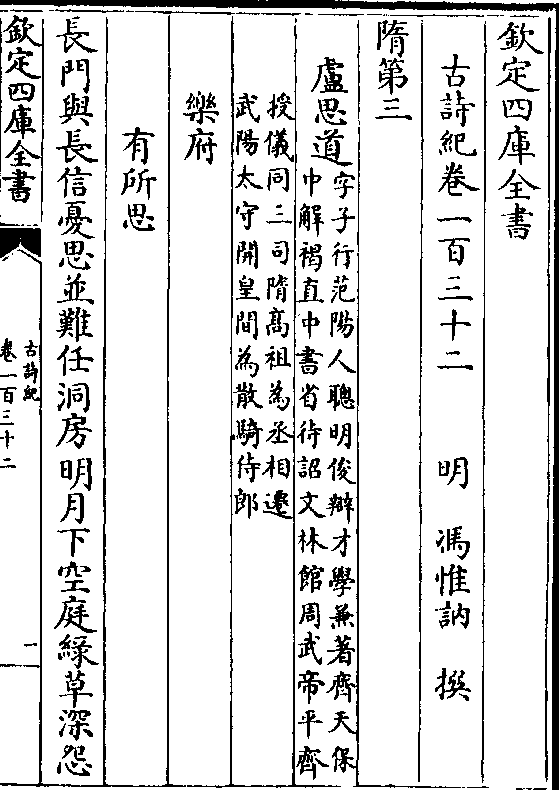 欽定四庫全書
古詩紀卷一百三十二　明　馮惟訥　撰
隋第三
盧思道字子行范陽人聰明俊辯才學兼著齊天保
中解褐直中書省待詔文林館周武帝平齊
授儀同三司隋高祖為丞相遷
武陽太守開皇間為散騎侍郎
樂府
有所思
長門與長信憂思並難任洞房明月下空庭綠草深怨
欽定四庫全書
古詩紀
卷一百三十二
一